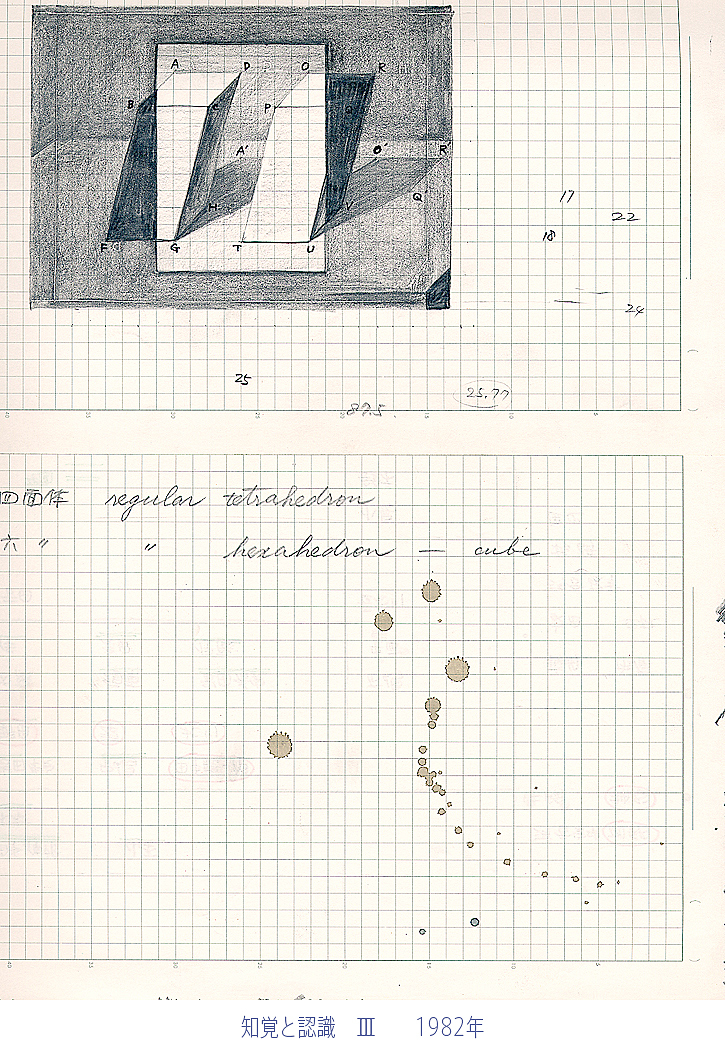 A D O R
B C P
A' O' R'
H V Q'
F G T U
17
22
18
24
25
25.77
87.5
四面体 regular tetrahedron
六 〃 〃 hexahedron — cube
知覚と認識 Ⅲ 1982年